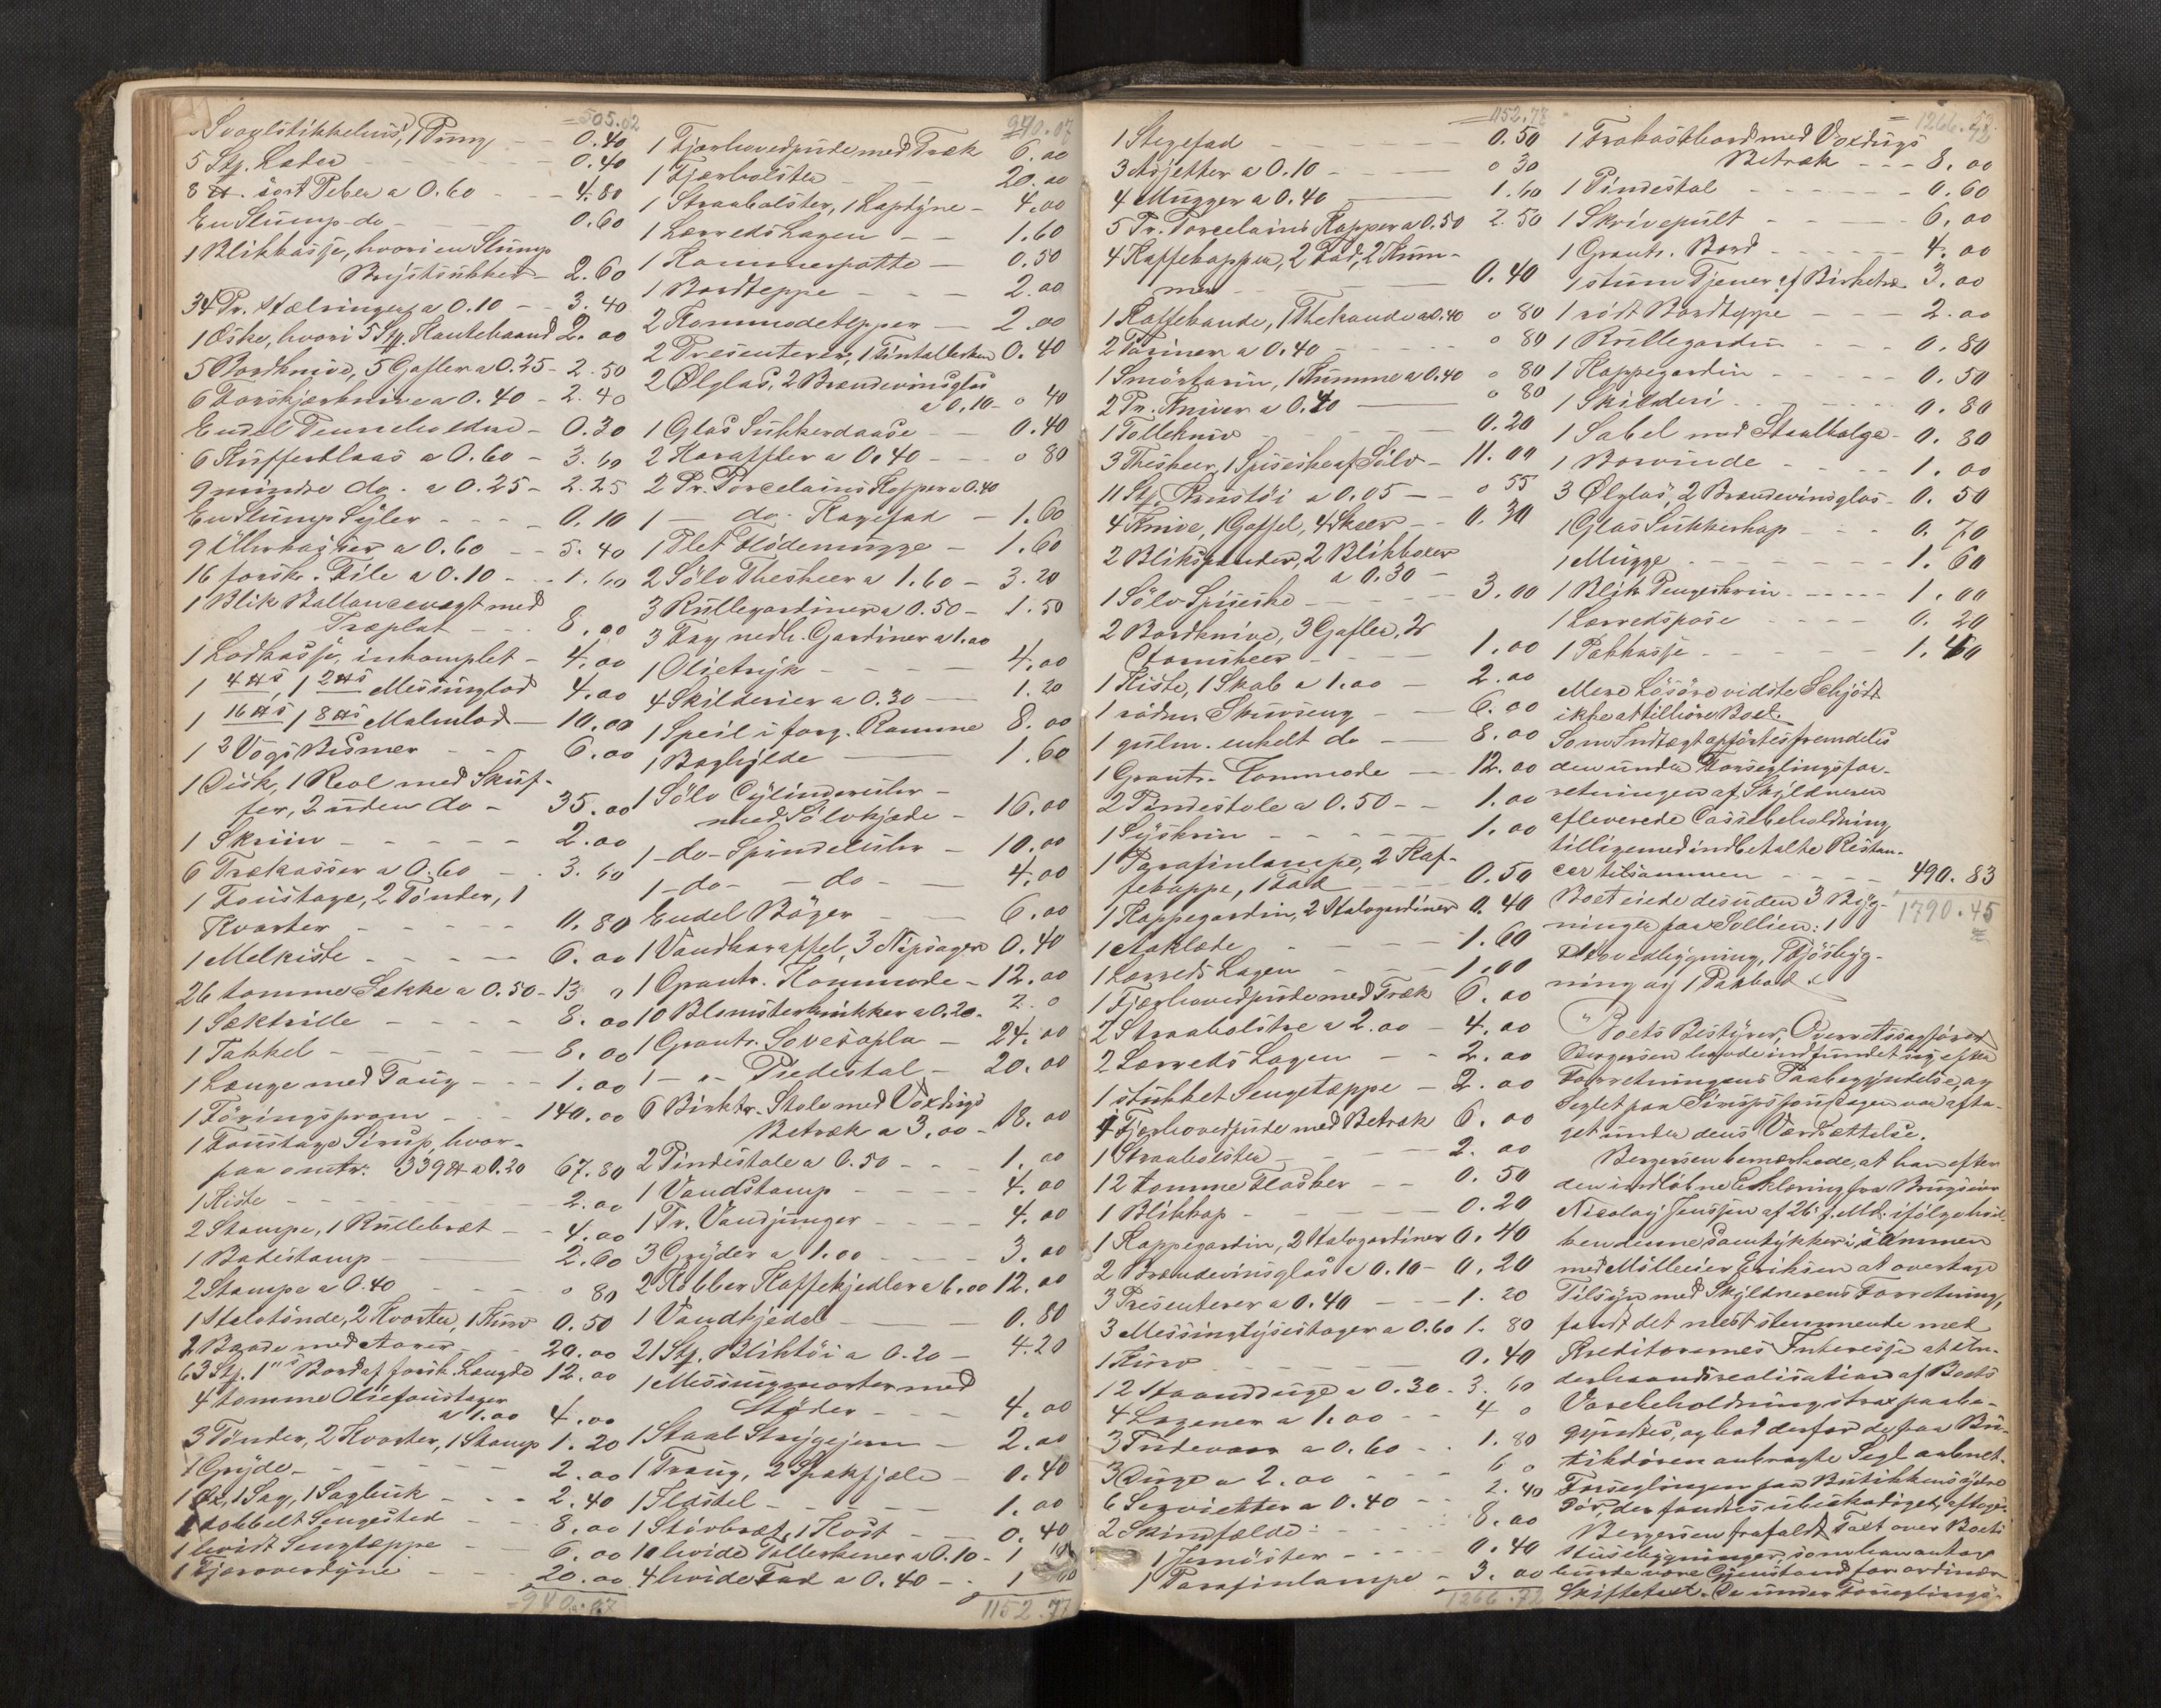 =505.02
Svovlstikkehus, 1 Pung - - 0.40
5 Stp. Læder - - - 0.40
8 ℔. sort Peber a 0.60 - - 4.80
En Slump do - - - 0.60
1 Blikkasse, hvori en Slump
Brystsukker - 2.60
34 Pr. Stælringer a 0.10 - - 3.40
1 Æske, hvori 5 Stp. Kantebaand 2.00
5 Bordknive, 5 Gafler a 0.25 - 2.50
6 Forskjærknive a 0.40 - 2.40
Endel Penneholdere - 0.30
6 Kuffertlaas a 0.60 - 3.60
9 mindre do. a 0.25 - 2.25
En Slump Syler - - - 0.10
9 Uhrkasser a 0.60 - - 5.40
16 forskj. File a 0.10 - - 1.60
1 Blik Ballancevægt med
Træplat - - - 8.00
1 Lodkasse, inkomplet - 4.00
1 4 ℔s, 1 2 ℔s Messinglod 4.00
1 16 ℔s, 1 8 ℔s Malmlod - 10.00
1 3 Vogs Bismer - - 6.00
1 Disk, 1 Reol med Skuf-
fer, 2 uden do - 35.00
1 Skriin - - - - - 2.00
6 Trækasser a 0.60 - - 3.60
1 Foustage, 2 Tønder, 1
Kvarter - - - - - 0.80
1 Melkiste - - - - - 6.00
26 tomme Sække a 0.50 - 13 "
1 Sæktrille - - - - 8.00
1 Takkel - - - - - 8.00
1 Længe med Taug - - - 1.00
1 Føringspram - - - 140.00
1 Foustage Sirup, hvor-
paa omtr. 339 ℔ a 0.20 67.80
1 Kiste - - - - - 2.00
2 Stampe, 1 Rullebræt - - 4.00
1 Badestamp - - 2.60
2 Stampe a 0.40 - - - " 80
1 Halvtønde, 2 Kvarter, 1 Kurv 0.50
2 Baade med Aarer - - - 20.00
63 Stp. 1"s Bord af forsk. Længde 12.00
4 tomme Oliefoustager
a 1.00 4.00
3 Tønder, 2 Kvarter, 1 Stamp 1.20
1 Gryde - - - - - 2.00
1 Øx, 1 Sag, 1 Sagbuk - - - 2.40
1 dobbelt Sengested - - - 8.00
1 hvidt Sengtæppe - - 6.00
1 Fjæroverdyne - - 20.00
=940.07
940.07
1 Fjærhovedpude med Træk 6.00
1 Fjærbolster - - - 20.00
1 Straabolster, 1 Lapdyne - 4.00
1 Lærreds Lagen - - 1.60
1 Kammerpotte - 0.50
1 Bordteppe - - - 2.00
2 Kommodetepper - 2.00
2 Presenterer, 1 Tintallerken 0.40
2 Ølglas, 2 Brændevinsglas
a 0.10 - " 40
1 Glas Sukkerdaase - - 0.40
2 Karaffler a 0.40 - - - " 80
2 Pr. Porcelains Kopper a 0.40
1 - do. Kagefad - 1.60
1 Plet Flødemugge - 1.60
2 Sølv Theskeer a 1.60 - 3.20
3 Rullegardiner a 0.50 - 1.50
3 Fag nedh. Gardiner a 1.00
1 Olietryk - - - - 4.00
4 Skilderier a 0.30 - - 1.20
1 Speil i forg. Ramme 8.00
1 Boghylde - - 1.60
1 Sølv Cylinderuhr -
med Sølvkjæde - 16.00
1 - do - Spindeluhr - 10.00
1 - do - - do - - 4.00
Endel Bøger - - 6.00
1 Vandkaraffel, 3 Nipsager 0.40
1 Grantr. Kommode - 12.00
10 Blomsterkrukker a 0.20 - 2."
1 Grantr. Sovesopha - 24.00
1 - " - Piedestal - 20.00
6 Birktr. Stole med Voxdugs
Betræk a 3.00 - 18.00
2 Pindestole a 0.50 - - - 1.00
1 Vandstamp - - - - 4.00
1 Pr. Vandjunger - - - 4.00
3 Gryder a 1.00 - - - 3.00
2 Kobber Kaffekjedler a 6.00 12.00
1 Vandkjedel - - - 0.80
21 Stp. Bliktøi a 0.20 - 4.20
1 Messingmorter med
Støder - - - 4.00
1 Staal Strygejern - 2.00
1 Traug, 2 Spækfjæle - 0.40
1 Ildstel - - - - - 1.00
1 Størbræt, 1 Kost - - 0.40
10 hvide Tallerkener a 0.10 - 1 00
4 hvide Fad a 0.40 - - 1 60
1152.77
1152.77
1 Stegefad - - - - 0.50
3 Asjetter a 0.10 - - " 30
4 Mugger a 0.40 - 1.60
5 Pr. Porcelains Kopper a 0.50 2.50
4 Kaffekopper, 2 Fad, 2 Kum-
mer - - - - 0.40
1 Kaffekande, 1 Thekande a 0.40 " 80
2 Tøriner a 0.40 - - - - " 80
1 Smørtarin, 1 Kumme a 0.40 " 80
2 Pr. Kniver a 0.40 - " 80
1 Tolleknive - - - - 0.20
3 Theskeer, 1 Spiseske af Sølv - 11.00
11 Stp. Krustøi a 0.05 - - " 55
4 Knive, 1 Gaffel, 4 Skeer - - 0.30
2 Blikspander, 2 Blikboxer
a 0.30 -
1 Sølv Spiseske - - - - 3.00
2 Bordknive, 3 Gafler, 2
Hornskeer - - - 1.00
1 Kiste, 1 Skab a 1.00 - 2.00
1 rødm. Skuvseng - - 6.00
1 gulm. enkelt do - 8.00
1 Grantr. Commode - - 12.00
2 Pindestole a 0.50 - - 1.00
1 Syskrin - - - - - 1.00
1 Parafinlampe, 2 Kaf-
fekoppe, 1 Fad - - - 0.50
1 Kappegardin, 2 Halvgardiner 0.40
1 Aaklæde - - - - 1.60
1 Lærreds Lagen - - - 1.00
1 Fjærhovedpude med Træk 6.00
2 Straabolstre a 2.00 - 4.00
2 Lærreds Lagen - - 2.00
1 stukket Sengetæppe - 2.00
1 Fjærhovedpude med Betræk 6.00
1 Straabolster - - - 2.00
12 tomme Flasker - - 0.50
1 Blikkop - - - - 0.20
1 Kappegardin, 2 Halvgardiner 0.40
2 Brændevinsglas a 0.10 - 0.20
3 Presenterer a 0.40 - - - 1.20
3 Messinglysestager a 0.60 1.80
1 Kurv - - - - - 0.40
12 Haandduge a 0.30 - 3.60
4 Lagener a 1.00 - - 4 "
3 Pudevaar a 0.60 - - 1.80
3 Duge a 2.00 - - - 6 "
6 Servietter a 0.40 - - 2.40
2 Skindfælde - - - - 8.00
1 - - - - 0.40
1 Parafinlampe - 3.00
1266.72
= 1266.72
1 Frokostbord med Voxdugs
Betræk - - - 8.00
1 Pindestol - - - - - - 0.60
1 Skrivepult - - - - 6.00
1 Grantr. Bord - - - - 4.00
1 stum Tjener af Birketræ 3.00
1 rødt Bordteppe - - - 2.00
1 Rullegardin - - - - 0.80
1 Kappegardin - - - - - 0.50
1 Skilderi - - - - - 0.80
1 Sabel med Staalbalge - 0.80
1 Borvinde - - - - 1.00
3 Ølglas, 2 Brændevinsglas - 0.50
1 Glas Sukkerkop - - - 0.70
1 Mugge - - - - - - - 1.60
1 Blik Pengeskrin - - - - - 1.00
1 Lærredspose - - - - 0.20
1 Pakkasse - - - - - - 1.40
Mere Løsøre vidste Schjødt
ikke at tilhøre Boet.
Som Indtægt opførtes fremdeles
den under Forseglingsfor-
retningen af Skyldneren
afleverede Cassebeholdning
tilligemed indbetalte Restan-
cer tilsammen - - - - - 490.83
1790.45
Boet eiede desuden 3 Byg-
ninger paa Sollien: 1
Hovedbygning, 1 Fjøsbyg-
ning og 1 Pakbod.
Boets Bestyrer, Overretssagfører
Bergersen havde indfundet sig efter
Forretningens Paabegyndelse, og
Seglet paa Sirupsfoustagen var afta-
get under dens Værdsættelse.
Bergersen bemærkede, at han efter
den indløbne Erklæring fra Brugseier
Nicolay Jenssen af 26 f. Md. ifølge hvil-
ken denne samtykker i sammen
med Mølleeier Eriksen at overtage
Tilsyn med Skyldnerens Forretning,
fandt det mest stemmende med
Kreditorernes Interesse at Un-
derhaandsrealisation af Boets
Varebeholdning strax paabe-
gyndtes, og bad derfor de paa Bu-
tikdøren anbragte Segl aabnet.
Forseglingen paa Butikkens ydre
Dør, der fandtes ubeskadiget, aftoges.
Bergersen frafaldt Taxt over Boets
Husebygninger, som han antog
burde være Gjenstand for ordinær
Skiftetaxt. De under Forseglings-